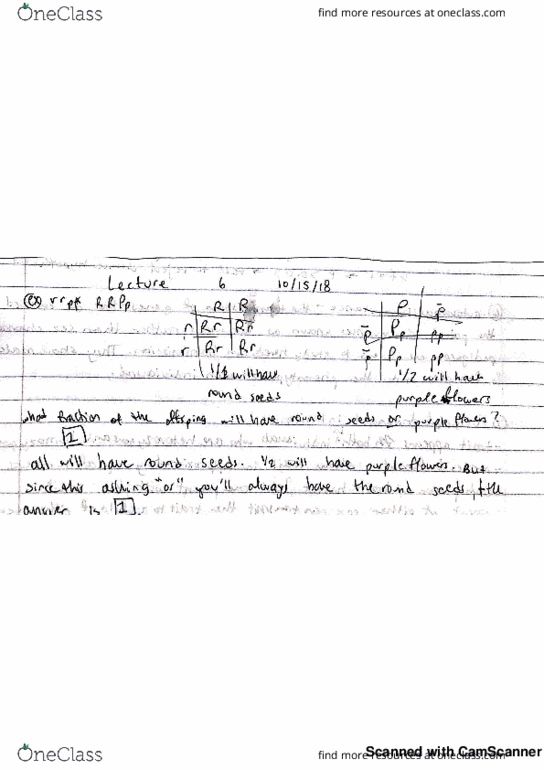 OneClass find more resources at oneclass.com
Lecture 6 10/15/18
ex rrpp x RRPp
R R
r Rr Rr
r Rr Rr
P p
p Pp pp
p Pp pp
will have 1/2 will have
round seeds purple flowers
what fraction of the offspring will have round seeds or purple flowers?
1
all will have round seeds. 1/2 will have purple flowers. But
since this asking "or" you'll always have the round seeds, the
answer is 1.
OneClass find more resources at oneclass.com
Scanned with CamScanner